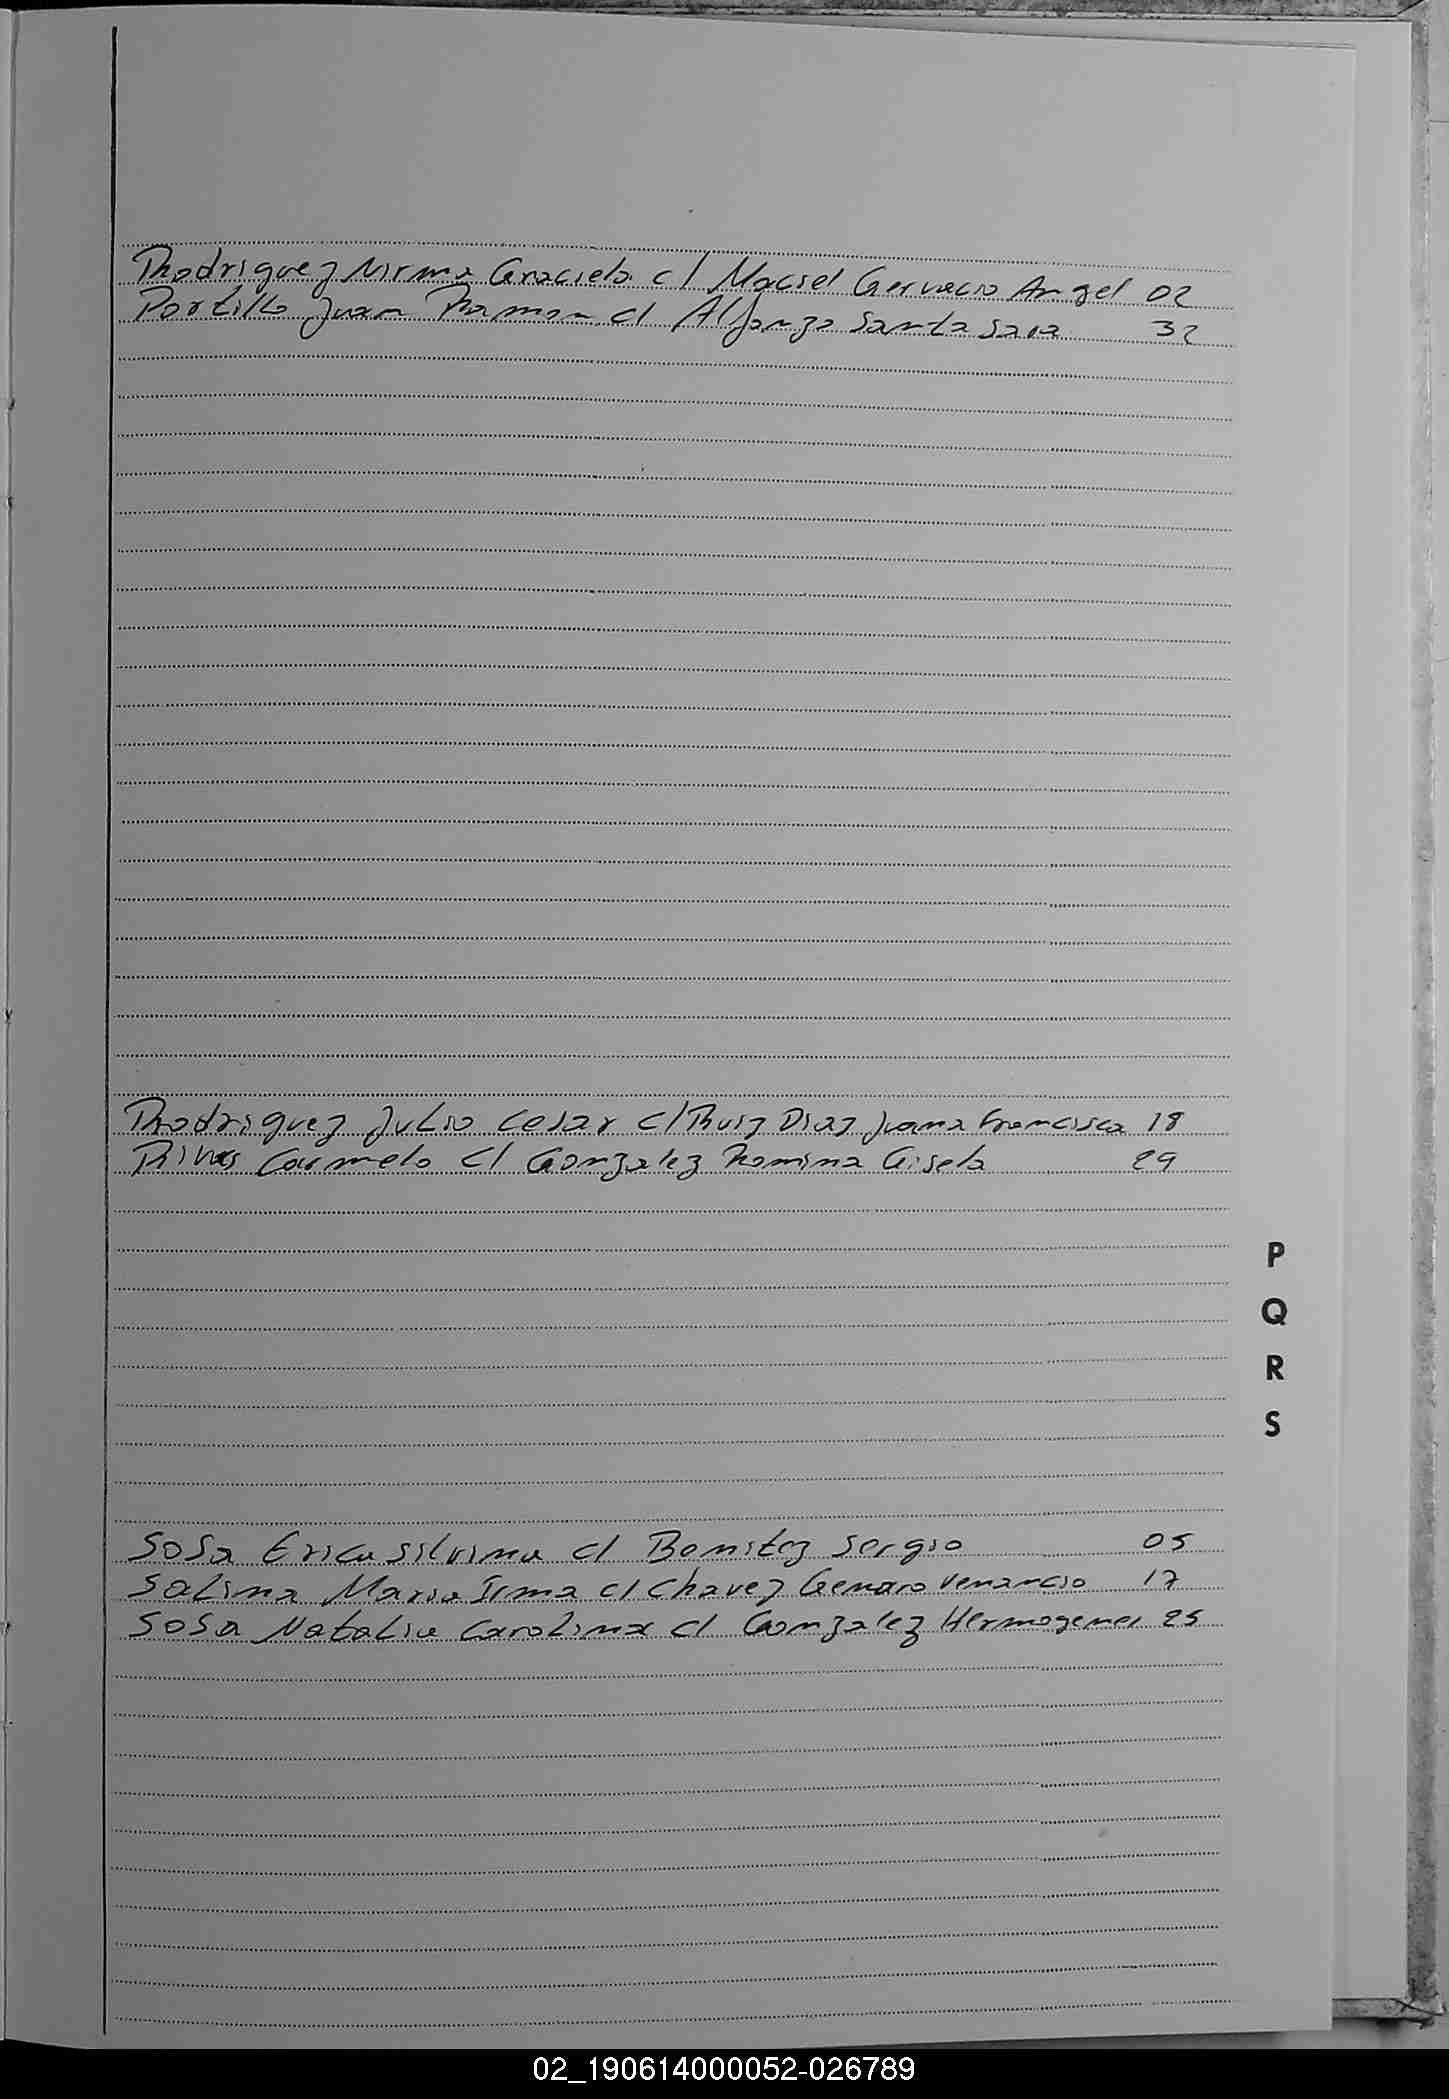 Rodriguez Mirma Graciela c/ Maciel Gervacio Angel 02
Portillo Juan Ramon c/ Alfonzo Santa Sara 32
Rodriguez Julio Cesar c/ Ruiz Diaz Juana Francisca 18
Rivas Carmelo c/ Gonzalez Romina Gisela 29
P
Q
R
S
Sosa Erica Silvina c/ Benitez Sergio 05
Salina Maria Irma c/ Chavez Genaro Venancio 17
Sosa Natalia Carolina c/ Gonzalez Hermogenes 25
02_190614000052-026789